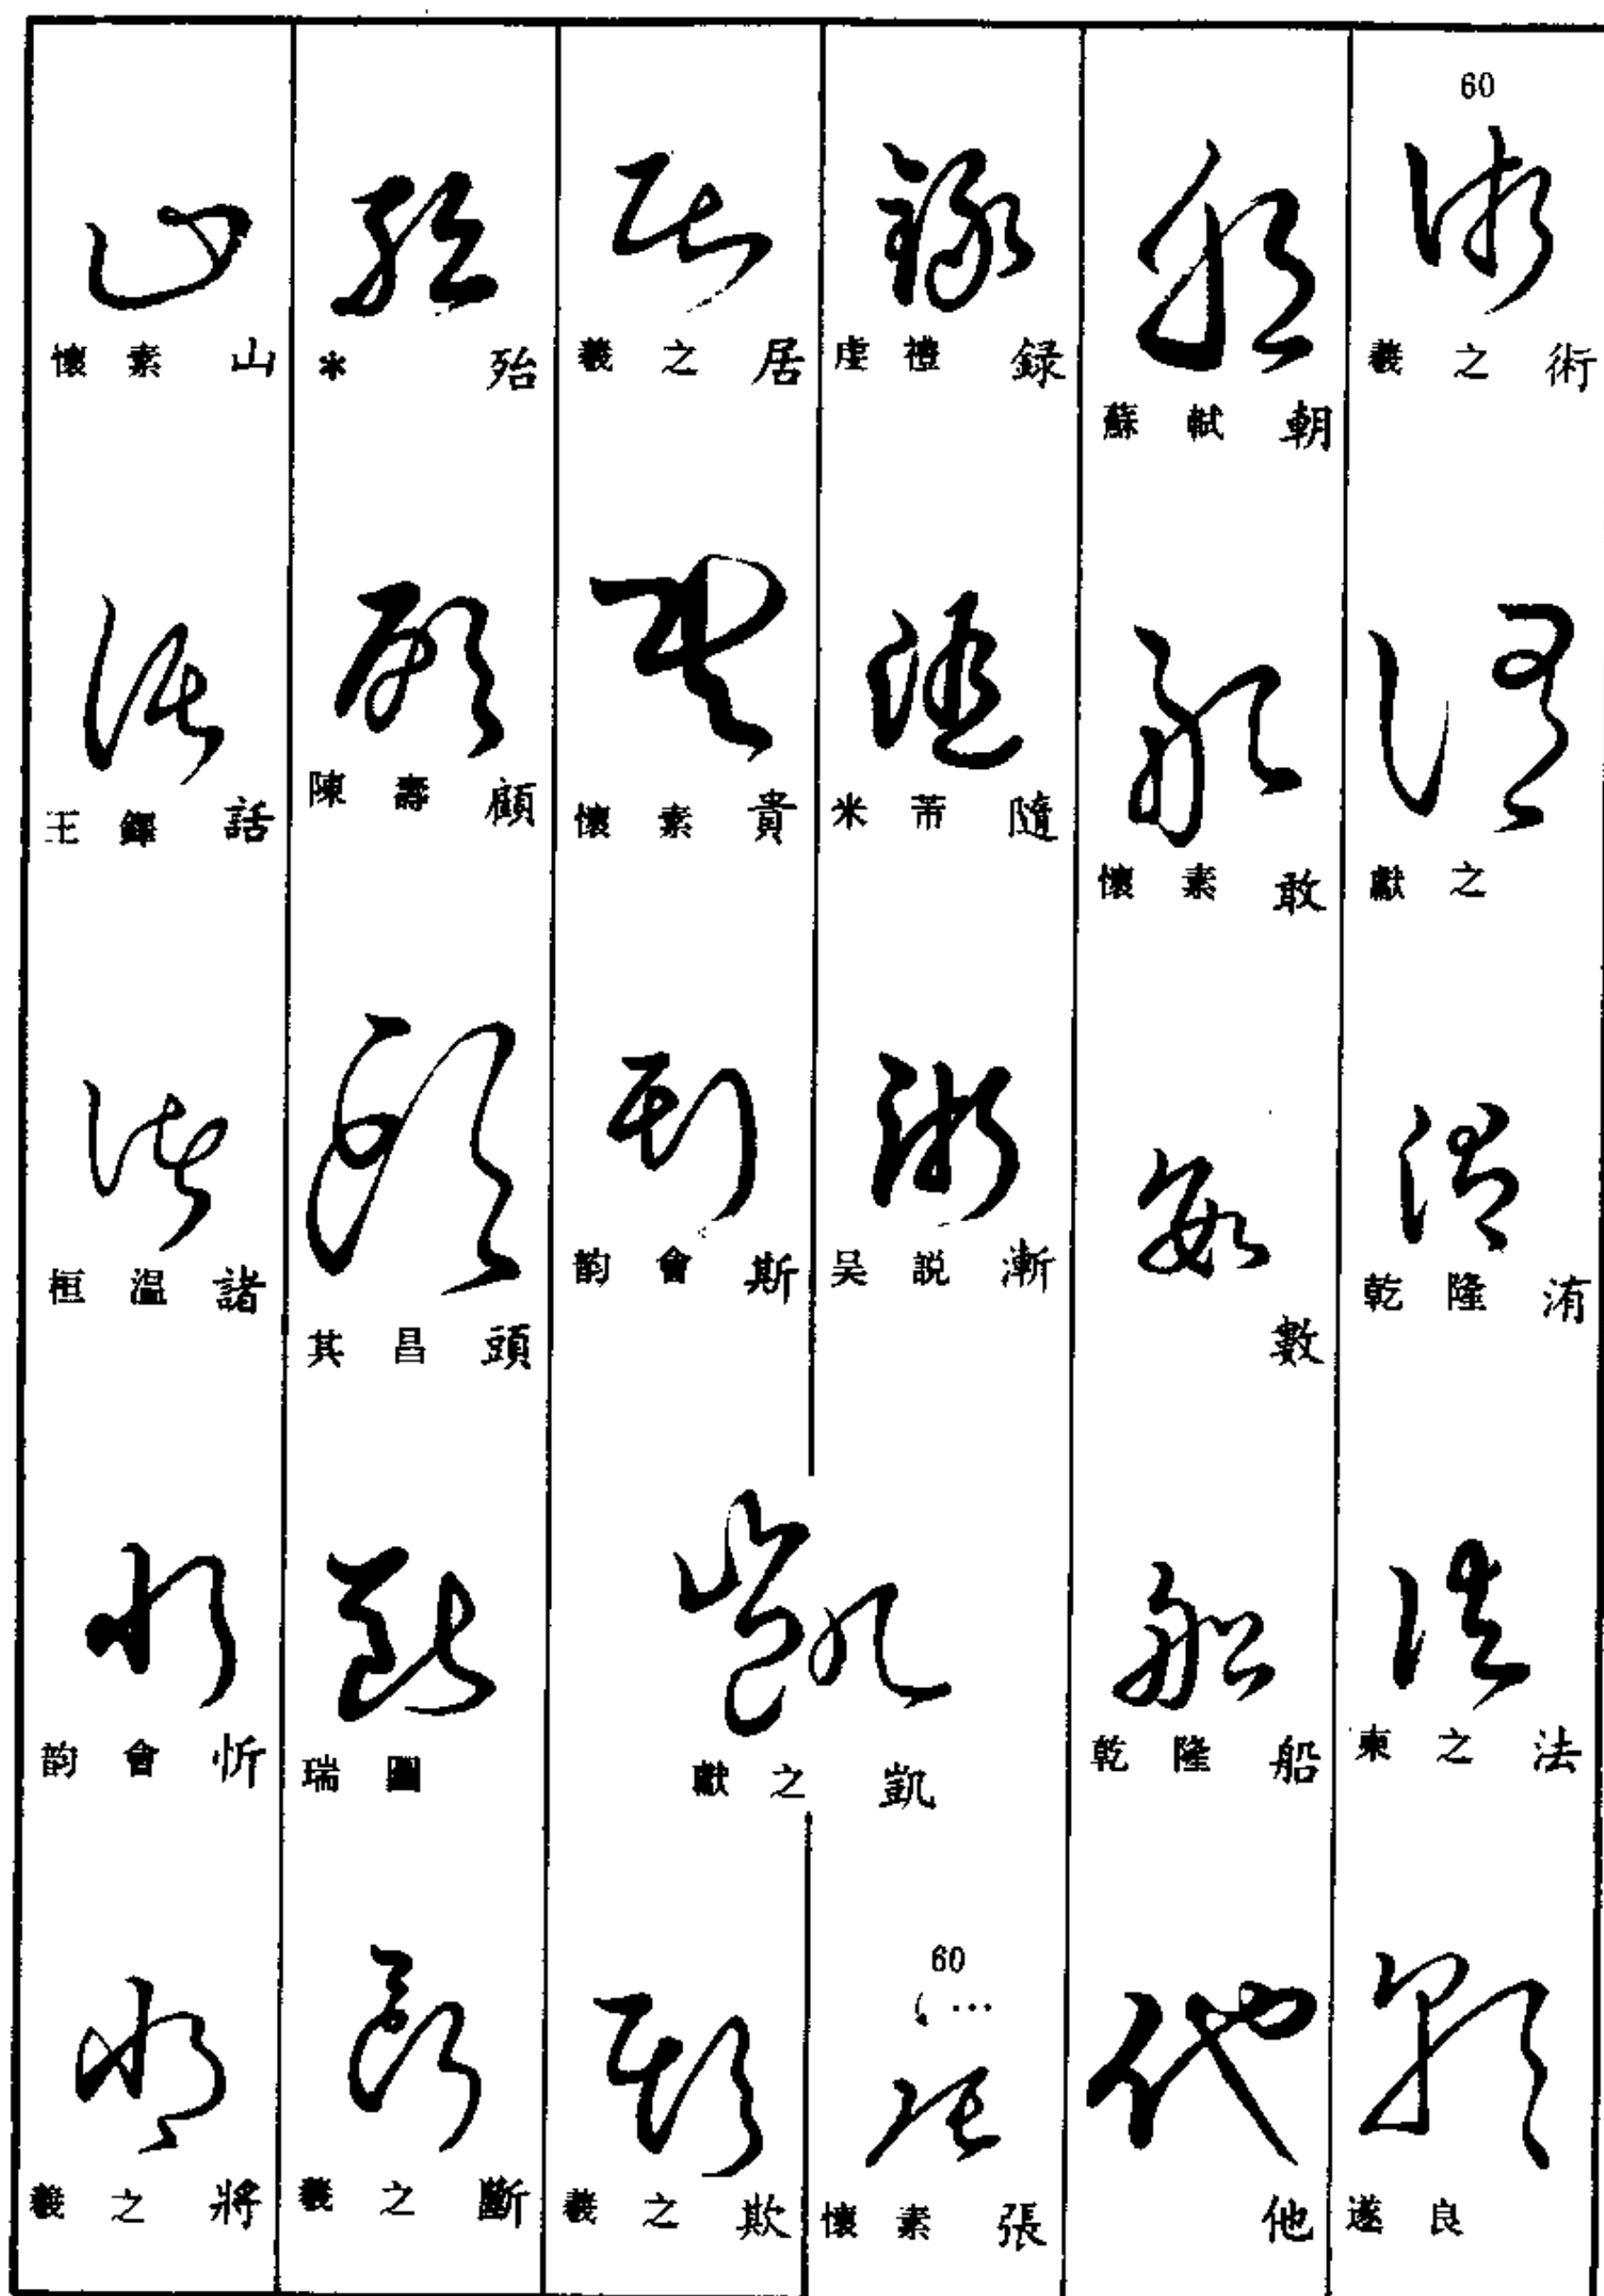 60
羲之術
獻之
乾隆洧
柬之法
遂良
蘇軾朝
懷素敢
數
乾隆船
他
虔禮録
米芾隨
吴説漸
60
…
懷素張
羲之居
懷素貴
韵會斯
獻之凱
羲之欺
*殆
陳壽顧
其昌頭
瑞圖
羲之斷
懷素山
王鐸話
桓温諸
韵會忻
羲之將